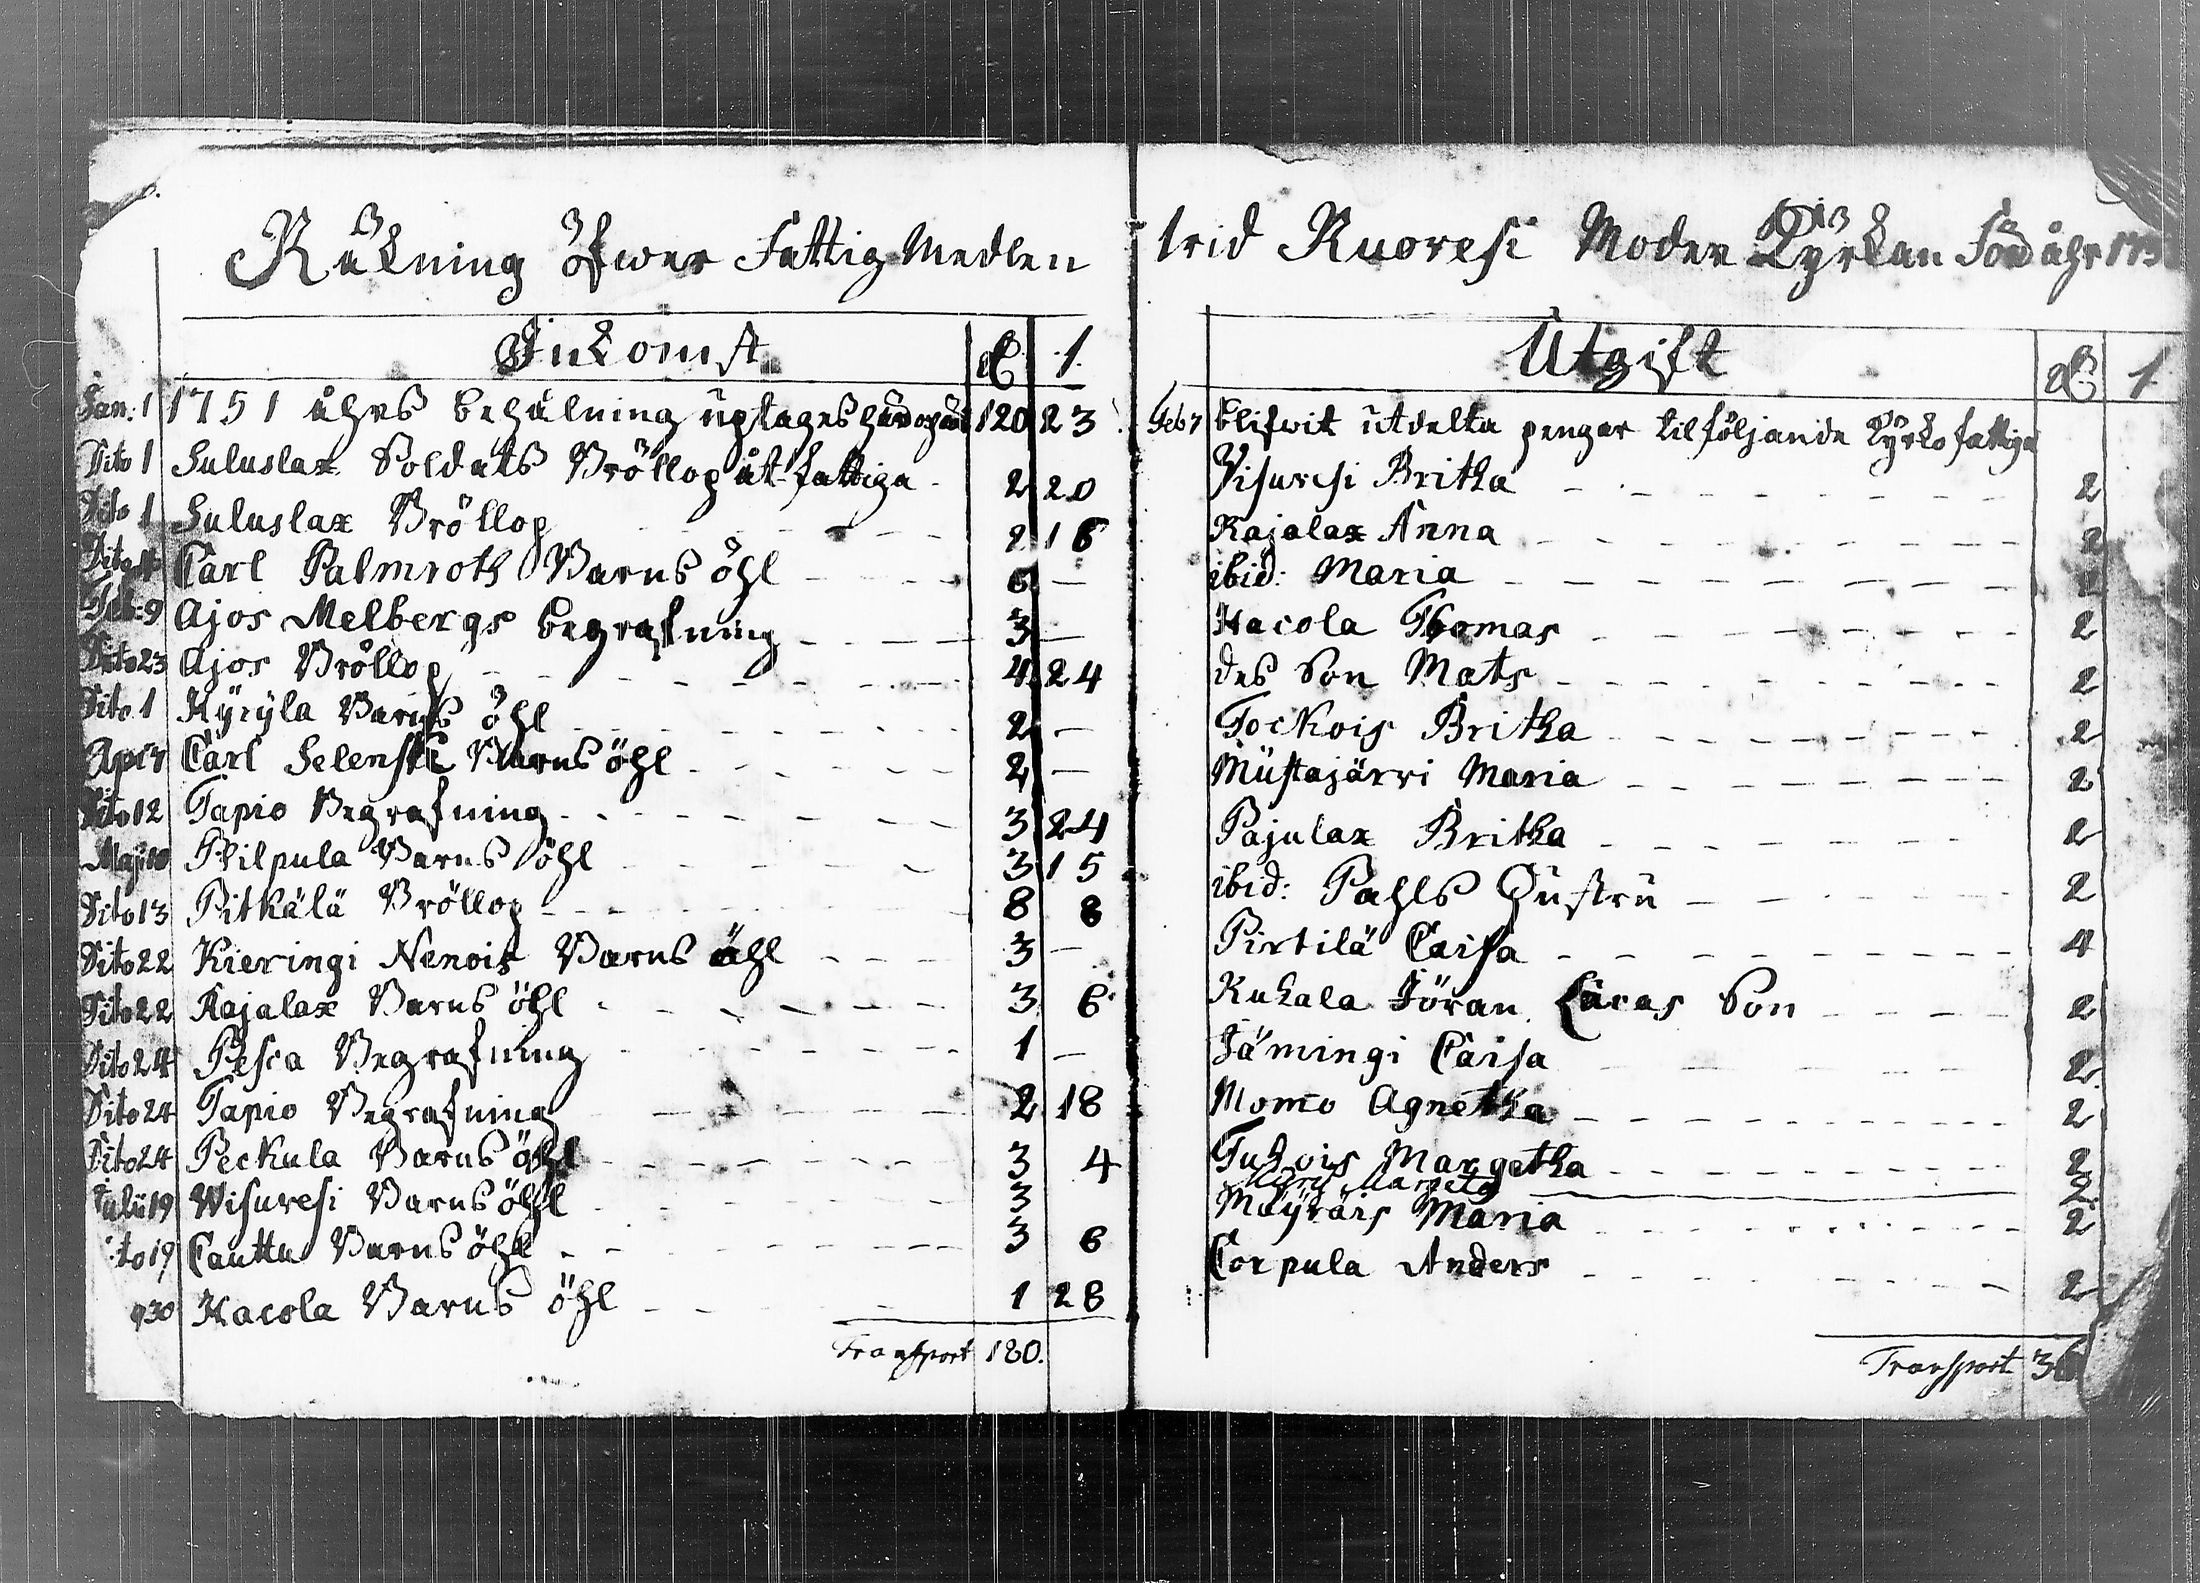 Räkning öfwer Fattig Medlen
Inkomst 1.
Jan: 1 1751 åhrs behålning uptages 120 23
Dito 1 Suluslax Soldats Bröllop åt fattiga 2 20
Dito 1 Suluslax Bröllop 2 16
Dito Carl Palmroth Barns öhl 6 —
Feb: 9 Ajos Melbergs begrafning 3 —
Dito 23 Ajos Bröllop 4 24
Dito 1 Kyryla Barns öhl 2 —
Apr 7 Carl Selenski Barns öhl 2 —
Dito 12 Tapio Begrafning 3 24
Maji 10 Philpula Barns öhl 3 15
Dito 13 Pitkälä Bröllop 8 8
Dito 22 Kieringi Nenois Barns öhl 3 —
Dito 22 Rajalax Barns öhl 3 6
Dito 24 Pesca Begrafning 1 —
Dito 24 Tapio Begrafning 2 18
Dito 24 Peckula Barns öhl 3 4
Julii 19 Wisuresi Barns öhl 3
ito 19 Cauttu Barns öhl 3 6
30 Kacola Barns öhl 1 28
Transport 180.
wid Ruovesi Moder Kyrkan För åhr 175
Utgift 1.
Feb 7 blifwit utdelta pengar til följande Kyrko fattiga
Visuresi Britha 2
Rajalax Anna 2
ibid: Maria 2
Kacola Thomas 2
des Son Mats 2
Tockois Britha 2
Mustajärvi Maria 2
Pajulax Britha 2
ibid: Pahls Hustru 2
Pirtilä Caisa 4
Kukala Jöran Lucas Son 2
Jämingi Caisa 2
Momo Agnetha 2
Tuhois Margetha 2
Margeta 2
Mäyräis Maria 2
Corpula Anders 2
Transport 36